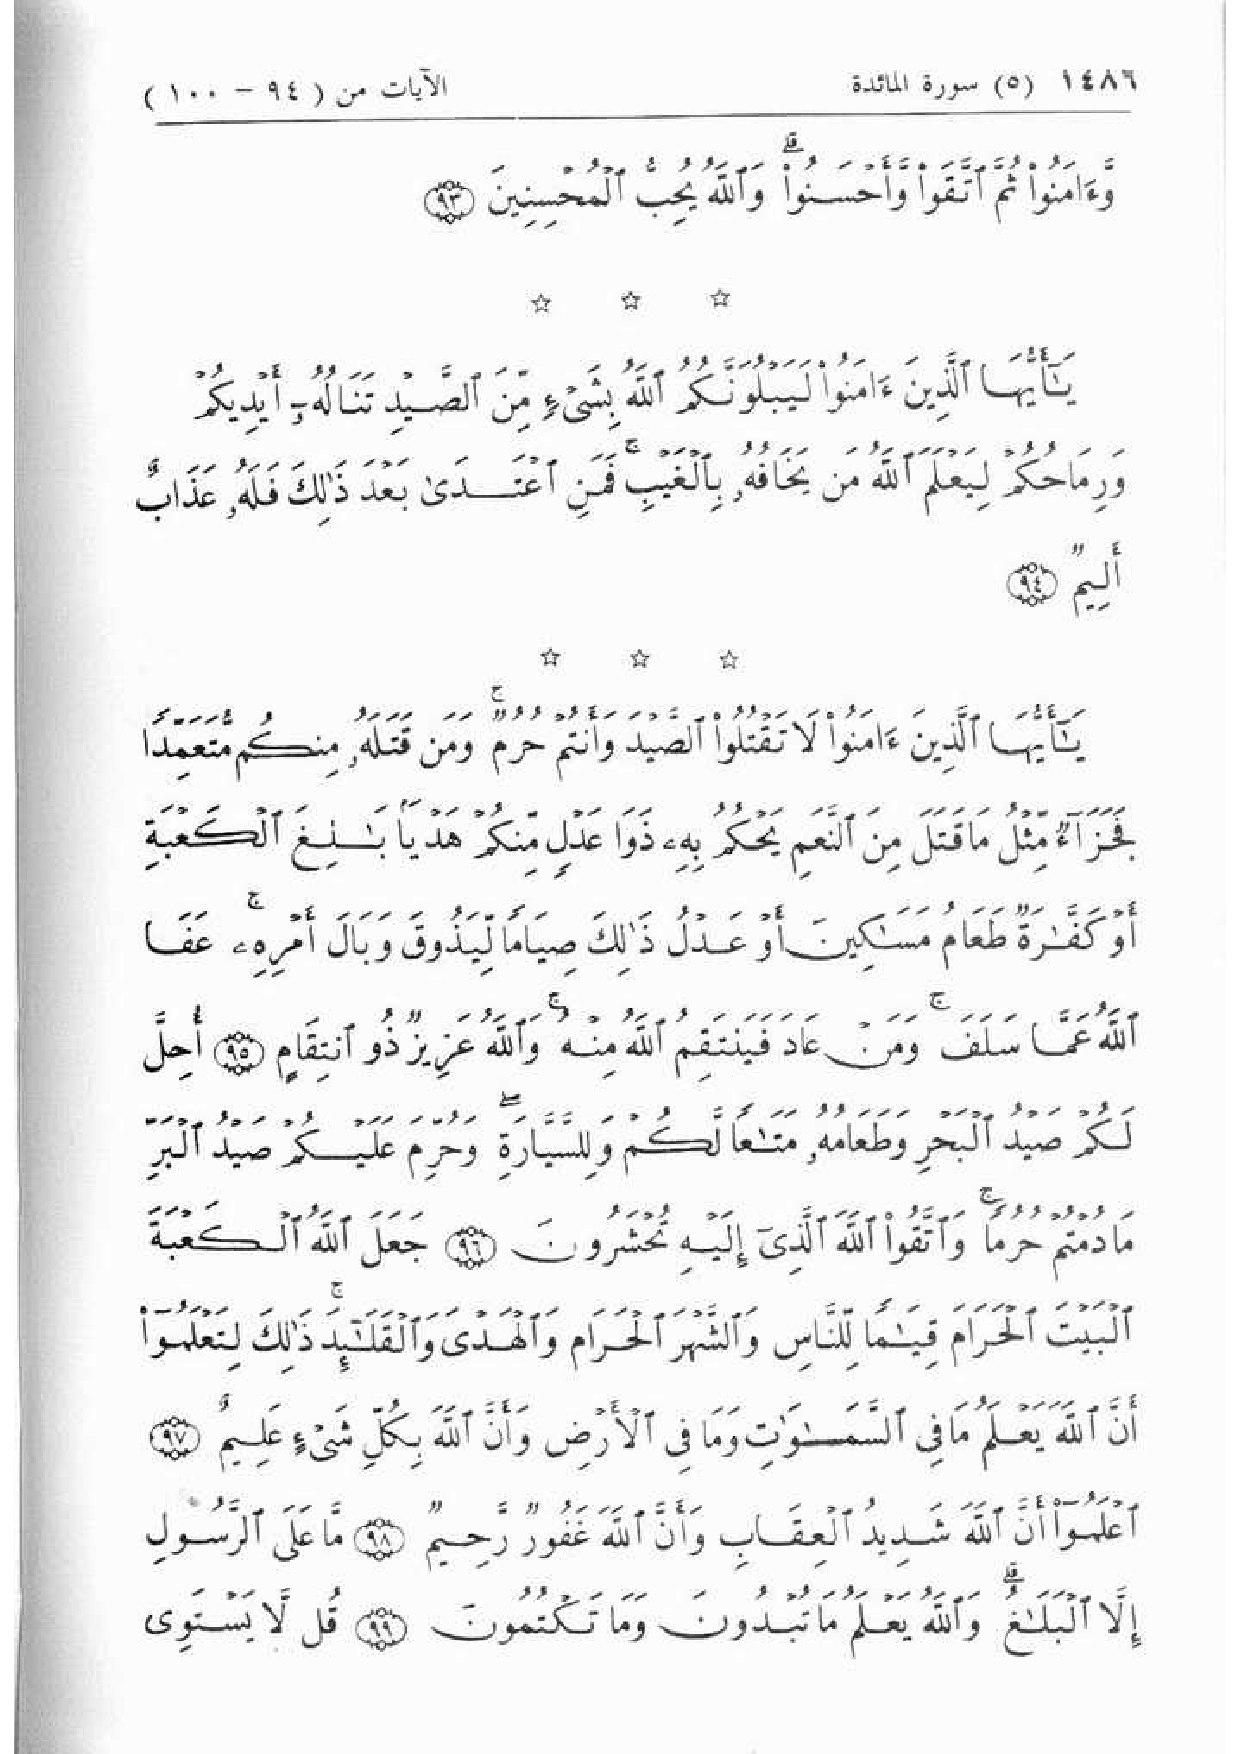 ١٤٨٦ (٥) سورة المائدة الآيات من ( ٩٤ - ١٠٠ )
وَّءَامَنُوا۟ ثُمَّ ٱتَّقَوا۟ وَّأَحْسَنُوا۟ ۗ وَٱللَّهُ يُحِبُّ ٱلْمُحْسِنِينَ ٩٣
☆ ☆ ☆
يَـٰٓأَيُّهَا ٱلَّذِينَ ءَامَنُوا۟ لَيَبْلُوَنَّكُمُ ٱللَّهُ بِشَىْءٍ مِّنَ ٱلصَّيْدِ تَنَالُهُۥٓ أَيْدِيكُمْ
وَرِمَاحُكُمْ لِيَعْلَمَ ٱللَّهُ مَن يَخَافُهُۥ بِٱلْغَيْبِ ۚ فَمَنِ ٱعْتَدَىٰ بَعْدَ ذَٰلِكَ فَلَهُۥ عَذَابٌ
أَلِيمٌ ٩٤
☆ ☆ ☆
يَـٰٓأَيُّهَا ٱلَّذِينَ ءَامَنُوا۟ لَا تَقْتُلُوا۟ ٱلصَّيْدَ وَأَنتُمْ حُرُمٌ ۚ وَمَن قَتَلَهُۥ مِنكُم مُّتَعَمِّدًا
فَجَزَآءٌ مِّثْلُ مَا قَتَلَ مِنَ ٱلنَّعَمِ يَحْكُمُ بِهِۦ ذَوَا عَدْلٍ مِّنكُمْ هَدْيًۢا بَـٰلِغَ ٱلْكَعْبَةِ
أَوْ كَفَّـٰرَةٌ طَعَامُ مَسَـٰكِينَ أَوْ عَدْلُ ذَٰلِكَ صِيَامًا لِّيَذُوقَ وَبَالَ أَمْرِهِۦ ۚ عَفَا
ٱللَّهُ عَمَّا سَلَفَ ۚ وَمَنْ عَادَ فَيَنتَقِمُ ٱللَّهُ مِنْهُ ۚ وَٱللَّهُ عَزِيزٌ ذُو ٱنتِقَامٍ ٩٥ أُحِلَّ
لَكُمْ صَيْدُ ٱلْبَحْرِ وَطَعَامُهُۥ مَتَـٰعًا لَّكُمْ وَلِلسَّيَّارَةِ ۖ وَحُرِّمَ عَلَيْكُمْ صَيْدُ ٱلْبَرِّ
مَا دُمْتُمْ حُرُمًا ۗ وَٱتَّقُوا۟ ٱللَّهَ ٱلَّذِىٓ إِلَيْهِ تُحْشَرُونَ ٩٦ جَعَلَ ٱللَّهُ ٱلْكَعْبَةَ
ٱلْبَيْتَ ٱلْحَرَامَ قِيَـٰمًا لِّلنَّاسِ وَٱلشَّهْرَ ٱلْحَرَامَ وَٱلْهَدْىَ وَٱلْقَلَـٰٓئِدَ ۚ ذَٰلِكَ لِتَعْلَمُوٓا۟
أَنَّ ٱللَّهَ يَعْلَمُ مَا فِى ٱلسَّمَـٰوَٰتِ وَمَا فِى ٱلْأَرْضِ وَأَنَّ ٱللَّهَ بِكُلِّ شَىْءٍ عَلِيمٌ ٩٧
ٱعْلَمُوٓا۟ أَنَّ ٱللَّهَ شَدِيدُ ٱلْعِقَابِ وَأَنَّ ٱللَّهَ غَفُورٌ رَّحِيمٌ ٩٨ مَّا عَلَى ٱلرَّسُولِ
إِلَّا ٱلْبَلَـٰغُ ۗ وَٱللَّهُ يَعْلَمُ مَا تُبْدُونَ وَمَا تَكْتُمُونَ ٩٩ قُل لَّا يَسْتَوِى